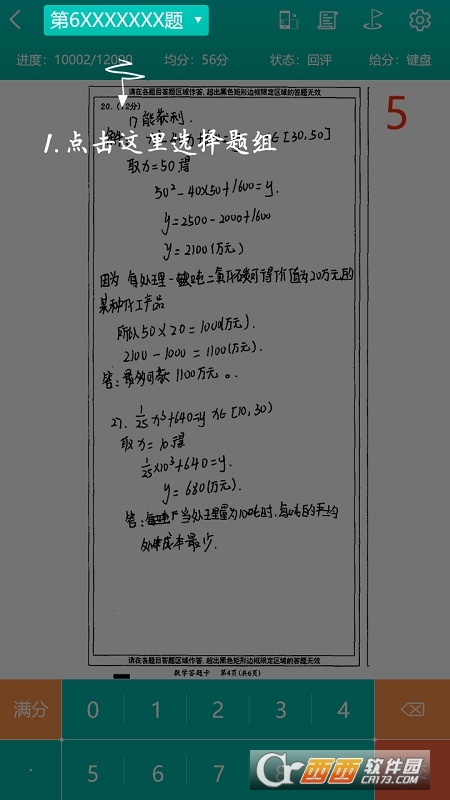 第6XXXXXXX题
进度：10002/12000 均分：56分 状态：回评 给分：键盘
请在各题目答题区域作答，超出黑色矩形边框限定区域的答题无效
20.(12分)
1.点击这里选择题组
5
1) 能获利.
∈[30,50]
取x=50得
50²-40×50+1600=y.
y=2500-2000+1600
y=2100(万元)
因为 每处理一吨二氧化碳可得价值为20万元的
某种化工产品
所以50×20=1000(万元).
2100-1000=1100(万元).
答:最多可获1100万元。
27. 1/25 x³+640=y x∈[10,30)
取x=10得
1/25×10³+640=y.
y=680(万元).
答:当处理量为10吨时,每吨的平均
处理成本最少.
请在各题目答题区域作答，超出黑色矩形边框限定区域的答题无效
数学答题卡 第4页(共6页)
满分 0 1 2 3 4
· 5 6 7 8
西西软件园
CR173.COM